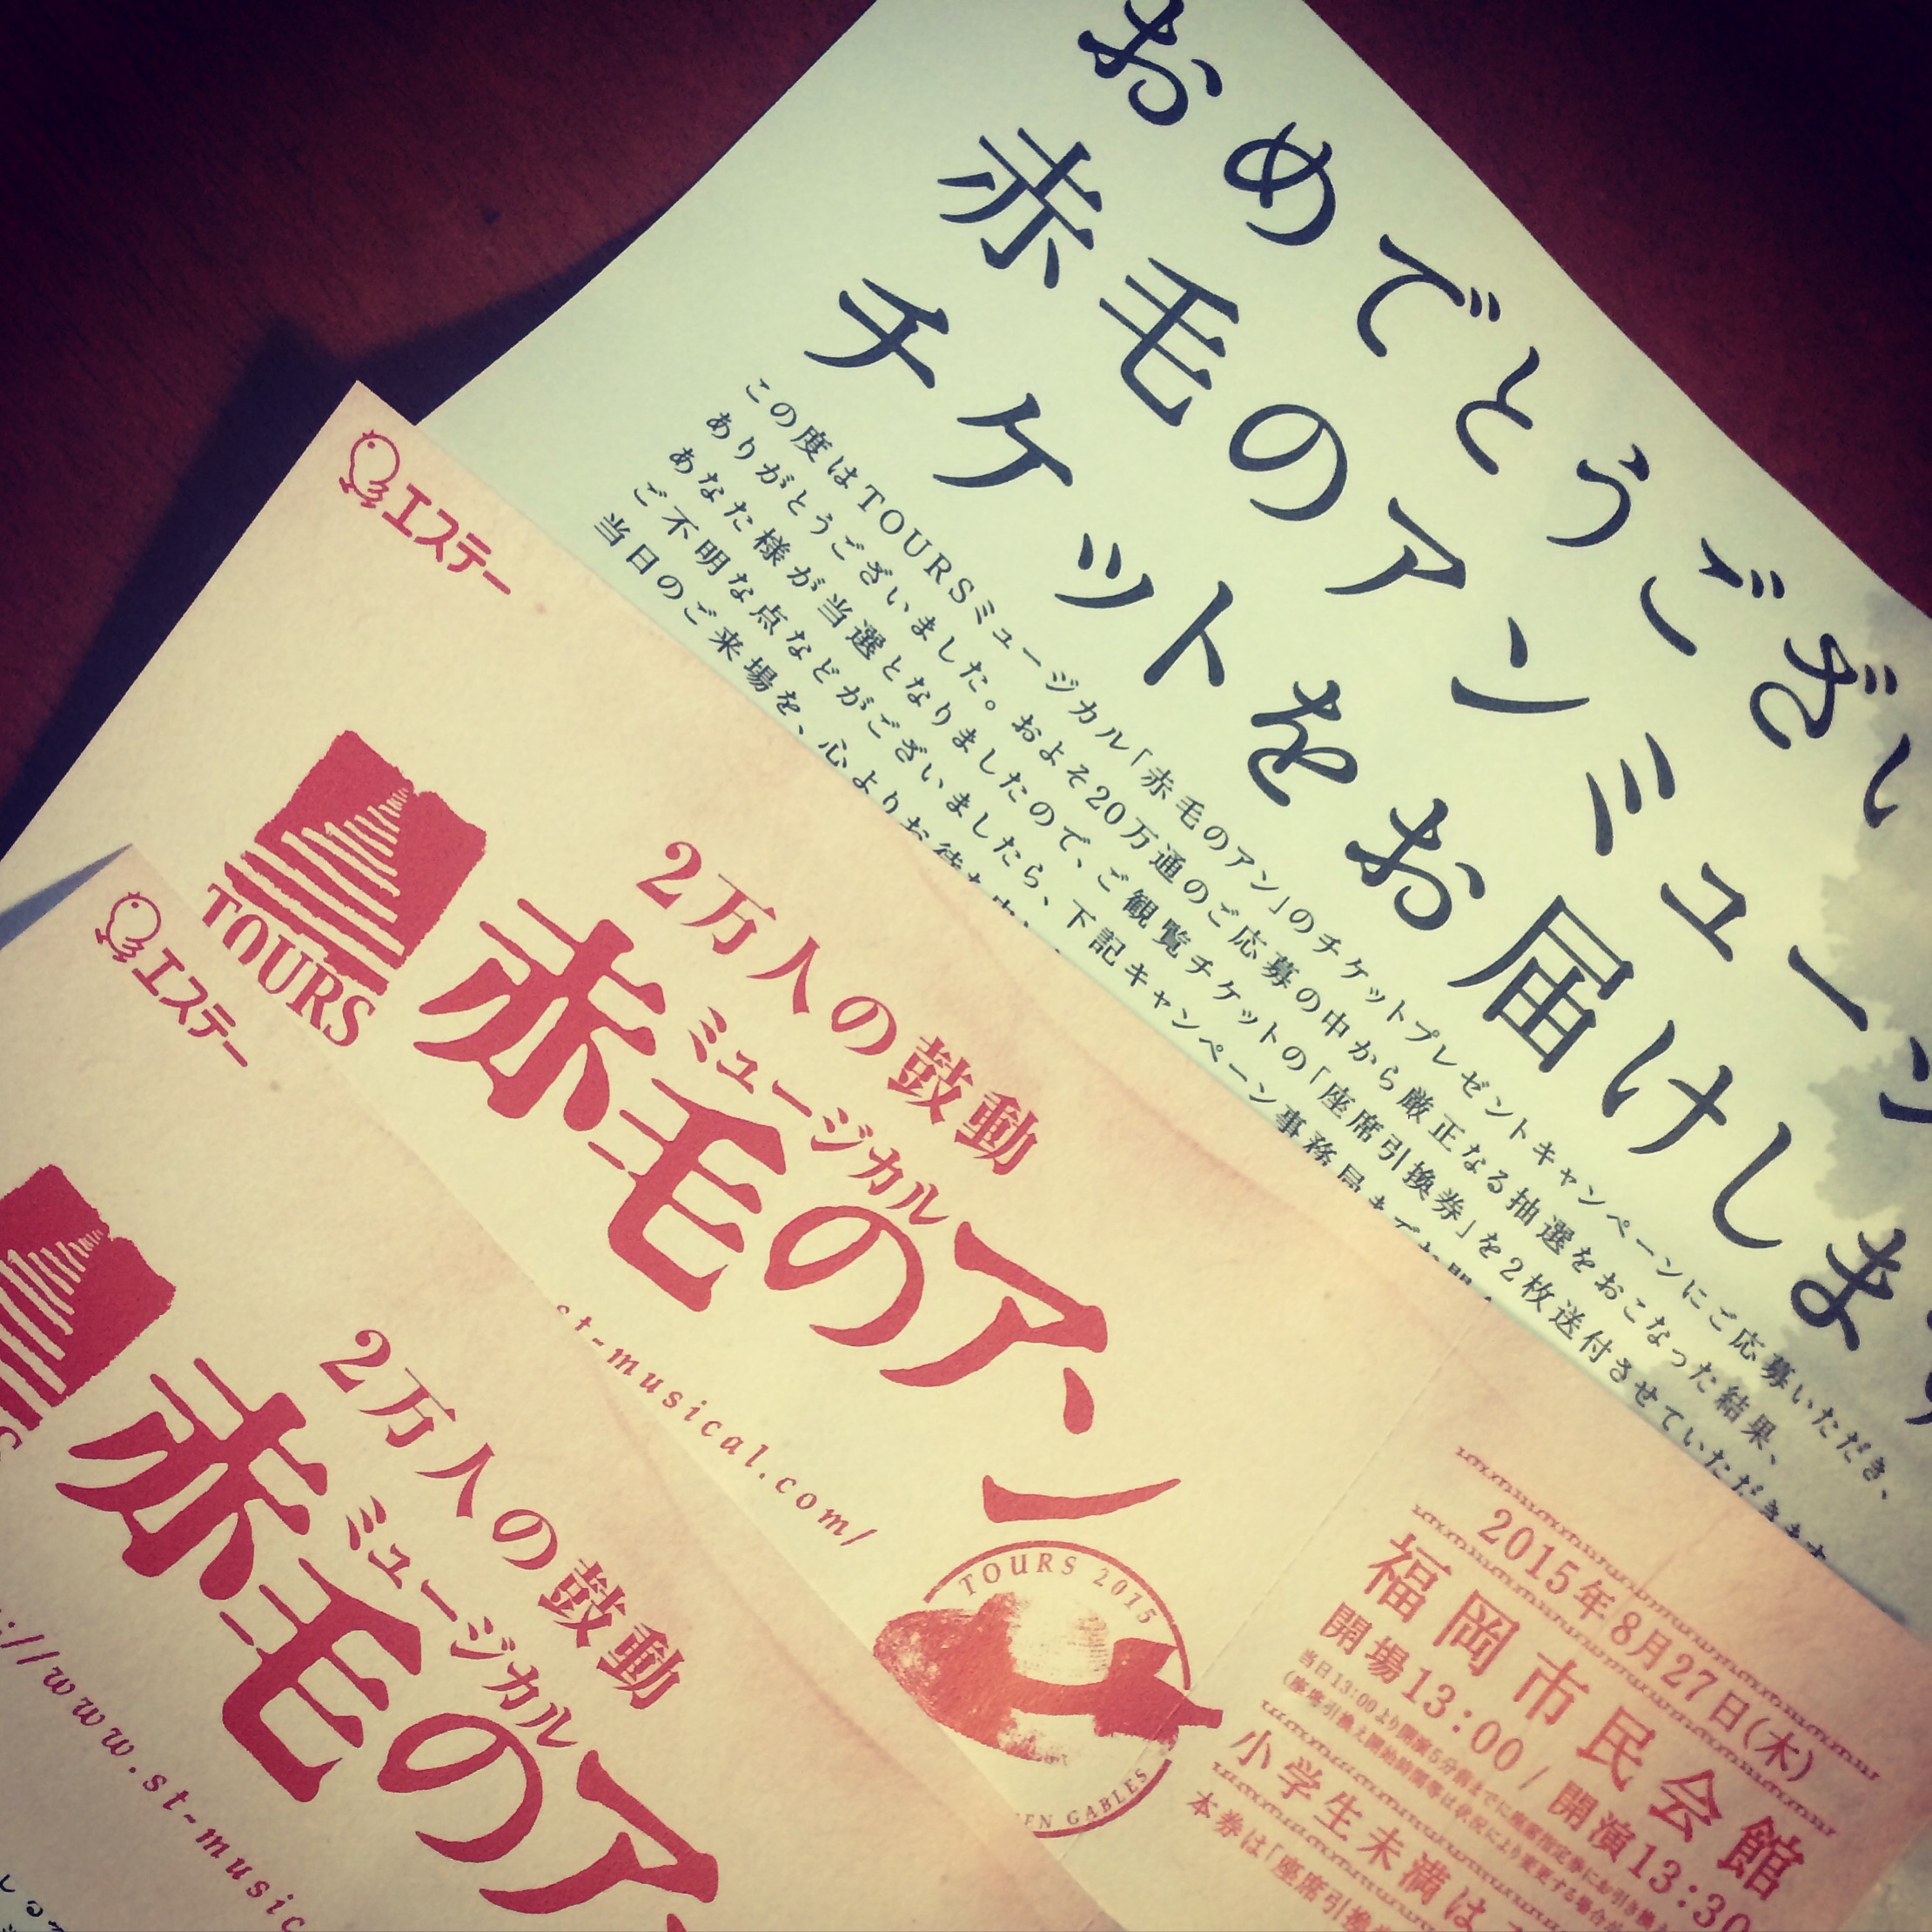 おめでとうござい
赤毛のアンミュージ
チケットをお届けしま
この度はTOURSミュージカル「赤毛のアン」のチケットプレゼントキャンペーンにご応募いただき、
ありがとうございました。およそ20万通のご応募の中から厳正なる抽選をおこなった結果、
あなた様が当選となりましたので、ご観覧チケットの「座席引換券」を2枚送付させていただきます
ご不明な点などがございましたら、下記キャンペーン事務局まで
当日のご来場を、心よりお待ち
エステー
TOURS
2万人の鼓動
ミュージカル
赤毛のアン
st-musical.com/
TOURS 2015
EN GABLES
2015年8月27日(木)
福岡市民会館
開場13:00 / 開演13:30
当日13:00より開演5分前までに座席指定券にお引き換え
(座席引換え開始時間等は状況により変更する場合が
小学生未満は
本券は「座席引換
エステー
S
2万人の鼓動
ミュージカル
赤毛のア
://www.st-music